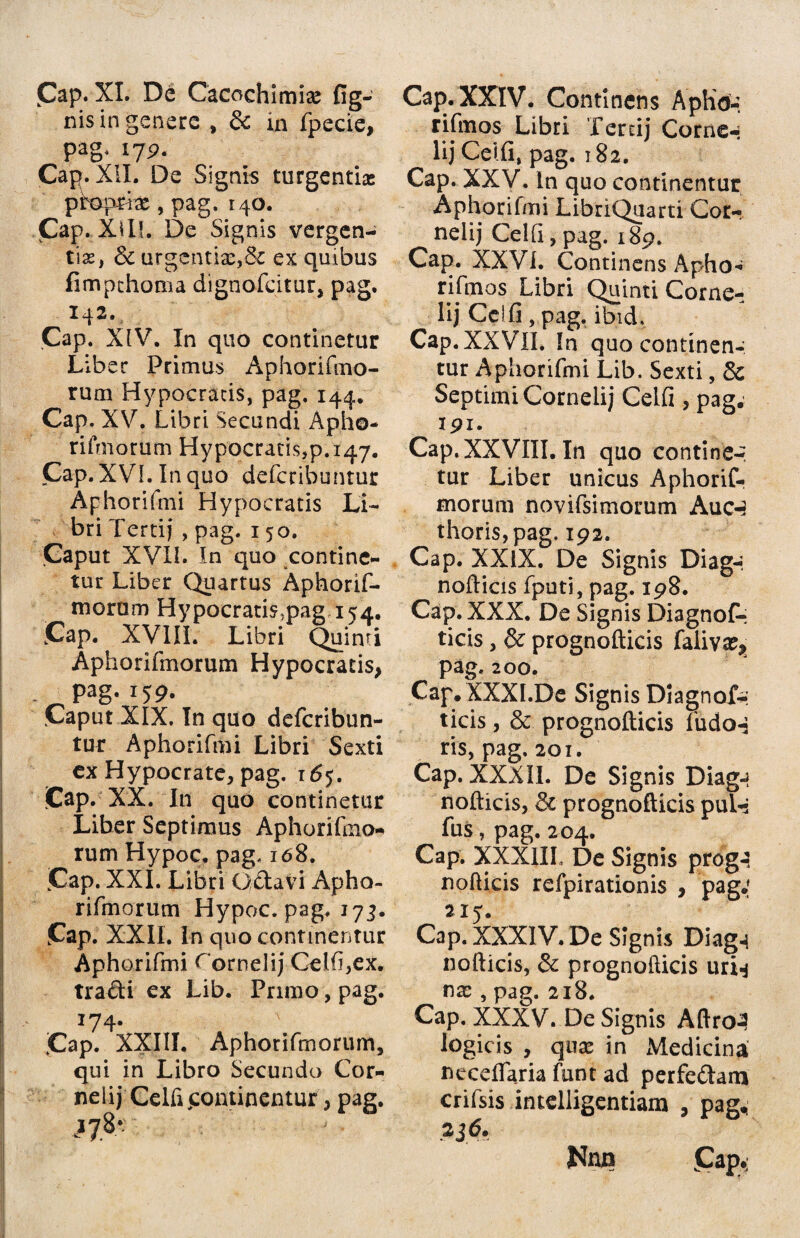 Cap. XI. De Cacochimiæ ſig-
nis in genere , & in ſpecie,
pag. 179.
Cap. XII. De Signis turgentiæ
propriæ , pag. 140.
Cap. XIII. De Signis vergen-
tiæ, & urgentiæ,& ex quibus
ſimpthoma dignoſcitur, pag.
142.
Cap. XIV. In quo continetur
Liber Primus Aphoriſmo-
rum Hypocratis, pag. 144.
Cap. XV. Libri Secundi Apho-
riſmorum Hypocratis,p.147.
Cap. XVI. In quo deſcribuntur
Aphoriſmi Hypocratis Li-
bri Tertij , pag. 150.
Caput XVII. In quo contine-
tur Liber Quartus Aphoriſ-
morum Hypocratis,pag 154.
Cap. XVIII. Libri Quinti
Aphoriſmorum Hypocratis,
pag. 159.
Caput XIX. In quo deſcribun-
tur Aphoriſmi Libri Sexti
ex Hypocrate, pag. 165.
Cap. XX. In quo continetur
Liber Septimus Aphoriſmo-
rum Hypoc. pag. 168.
Cap. XXI. Libri Octavi Apho-
riſmorum Hypoc. pag. 173.
Cap. XXII. In quo continentur
Aphoriſmi Cornelij Celſi,ex.
tracti ex Lib. Primo, pag.
174.
Cap. XXIII. Aphoriſmorum,
qui in Libro Secundo Cor-
nelij Celſi continentur, pag.
178.
Cap. XXIV. Continens Apho-
riſmos Libri Tertij Corne-
lij Celſi, pag. 182.
Cap. XXV. In quo continentur
Aphoriſmi LibriQuarti Cor-
nelij Celſi, pag. 189.
Cap. XXVI. Continens Apho-
riſmos Libri Quinti Corne-
lij Celſi , pag. ibid.
Cap. XXVII. In quo continen-
tur Aphoriſmi Lib. Sexti, &
Septimi Cornelij Celſi , pag.
191.
Cap. XXVIII. In quo contine-
tur Liber unicus Aphoriſ-
morum noviſsimorum Auc-
thoris, pag. 192.
Cap. XXIX. De Signis Diag-
noſticis ſputi, pag. 198.
Cap. XXX. De Signis Diagnoſ-
ticis , & prognoſticis ſalivæ,
pag. 200.
Cap. XXXI.De Signis Diagnoſ-
ticis , & prognoſticis ſudo-
ris, pag. 201.
Cap. XXXII. De Signis Diag-
noſticis, & prognoſticis pul-
ſus , pag. 204.
Cap. XXXIII. De Signis prog-
noſticis reſpirationis , pag.
215.
Cap. XXXIV. De Signis Diag-
noſticis, & prognoſticis uri-
næ , pag. 218.
Cap. XXXV. De Signis Aſtro-
logicis , quæ in Medicina
neceſſaria ſunt ad perfectam
criſsis intelligentiam , pag.
236.
Nnn Cap.